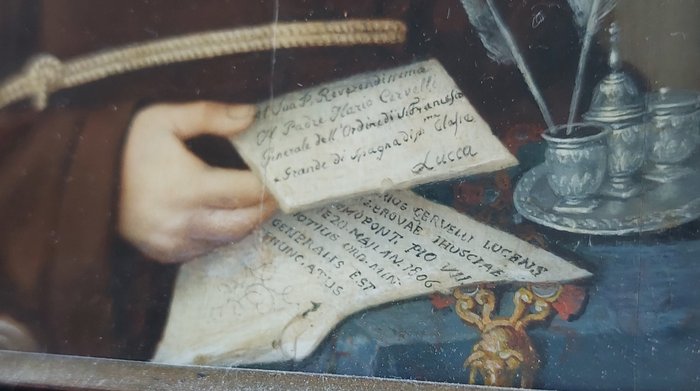 Al Sua P. Reverendissima
Il Padre Ilario Cervelli
Generale dell'Ordine di S. Francesco
e Grande di Spagna di p.ma Classe
Lucca
RIUS CERVELLI LUCENS
S. PROVAE THUSCIAE
PONT. PIO VII
E 20. MAII AN. 1806
TOTIUS ORD. MIN.
GENERALIS EST
NUNCIATUS